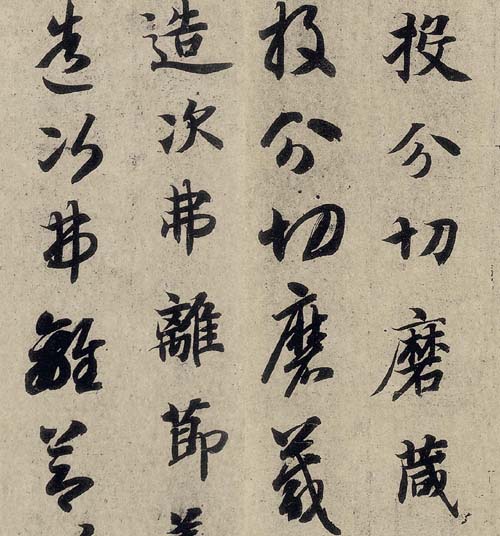 投分切磨箴
投分切磨箴
造次弗離節
造次弗離節